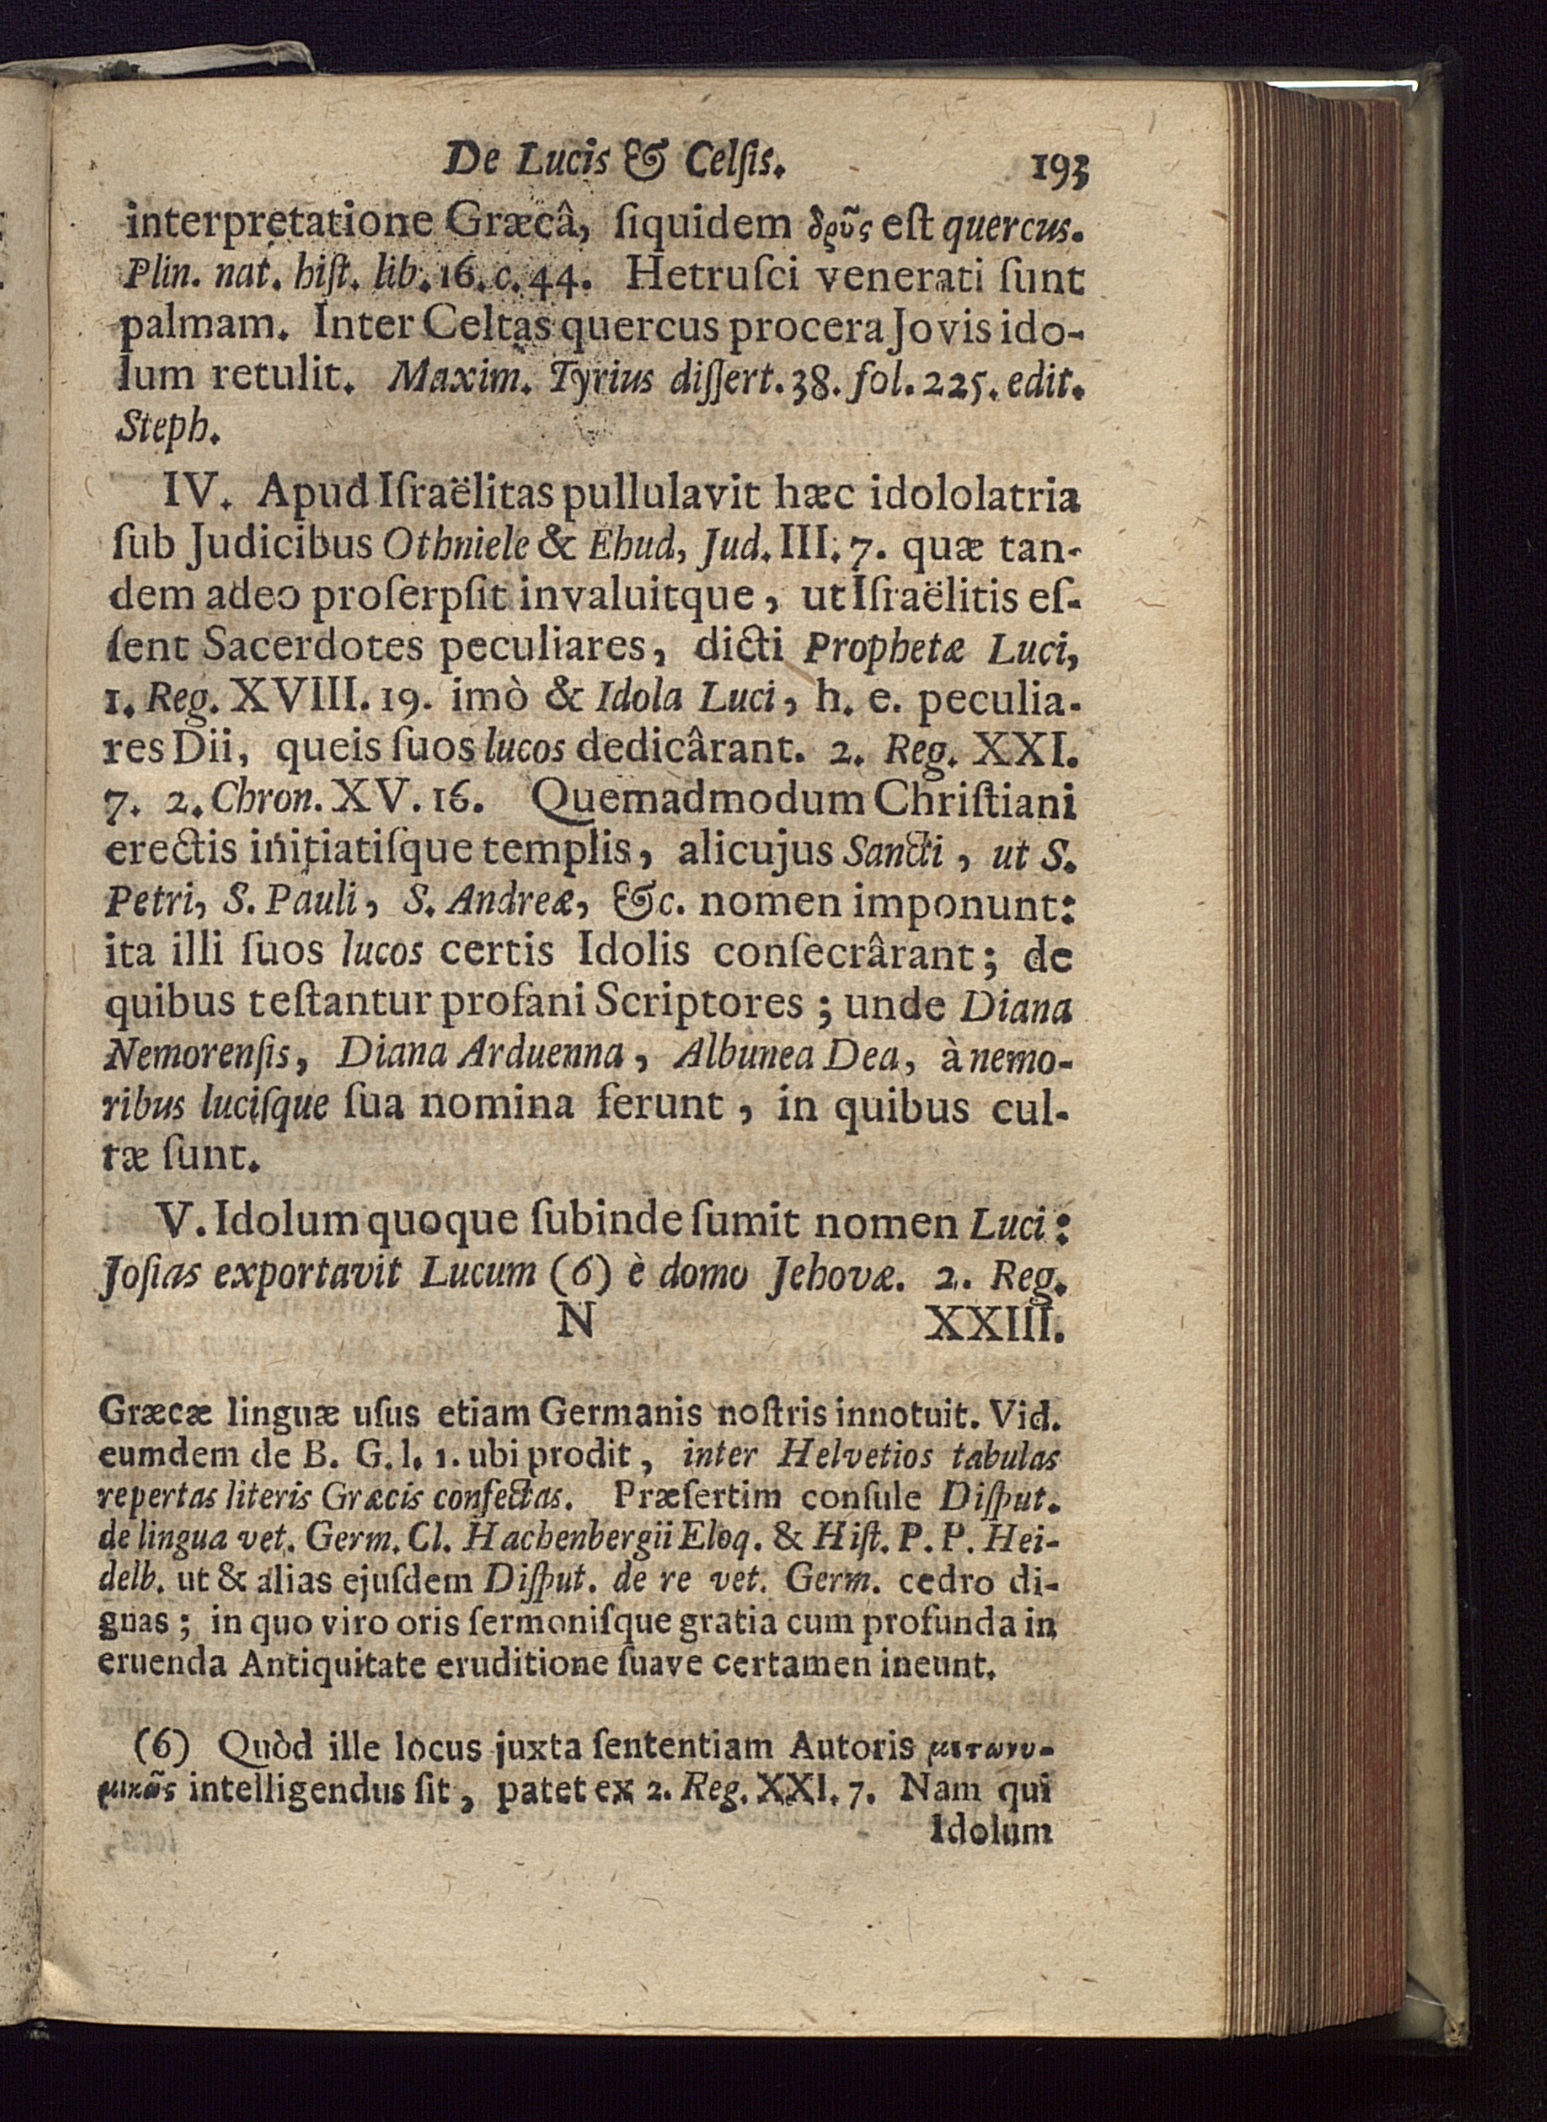 De Lucis & Celſis. 193
interpretatione Græcâ, ſiquidem δρῦς eſt quercus.
Plin. nat. hiſt. lib. 16. c. 44. Hetruſci venerati ſunt
palmam. Inter Celtas quercus procera Jovis ido-
lum retulit. Maxim. Tyrius diſſert. 38. fol. 225. edit.
Steph.
IV. Apud Iſraëlitas pullulavit hæc idololatria
ſub Judicibus Othniele & Ehud, Jud. III. 7. quæ tan-
dem adeo proſerpſit invaluitque, ut Iſraëlitis eſ-
ſent Sacerdotes peculiares, dicti Prophetæ Luci,
1. Reg. XVIII. 19. imò & Idola Luci, h. e. peculia-
res Dii, queis ſuos lucos dedicârant. 2. Reg. XXI.
7. 2. Chron. XV. 16. Quemadmodum Chriſtiani
erectis initiatiſque templis, alicujus Sancti, ut S.
Petri, S. Pauli, S. Andreæ, &c. nomen imponunt:
ita illi ſuos lucos certis Idolis conſecrârant; de
quibus teſtantur profani Scriptores; unde Diana
Nemorenſis, Diana Arduenna, Albunea Dea, à nemo-
ribus luciſque ſua nomina ferunt, in quibus cul-
tæ ſunt.
V. Idolum quoque ſubinde ſumit nomen Luci:
Joſias exportavit Lucum (6) è domo Jehovæ. 2. Reg.
N XXIII.
Græcæ linguæ uſus etiam Germanis noſtris innotuit. Vid.
eumdem de B. G. l. 1. ubi prodit, inter Helvetios tabulas
repertas literis Græcis confectas. Præſertim conſule Diſput.
de lingua vet. Germ. Cl. Hachenbergii Eloq. & Hiſt. P. P. Hei-
delb. ut & alias ejuſdem Diſput. de re vet. Germ. cedro di-
gnas; in quo viro oris ſermoniſque gratia cum profunda in
eruenda Antiquitate eruditione ſuave certamen ineunt.
(6) Quòd ille locus juxta ſententiam Autoris μετωνυ-
μικῶς intelligendus ſit, patet ex 2. Reg. XXI. 7. Nam qui
Idolum